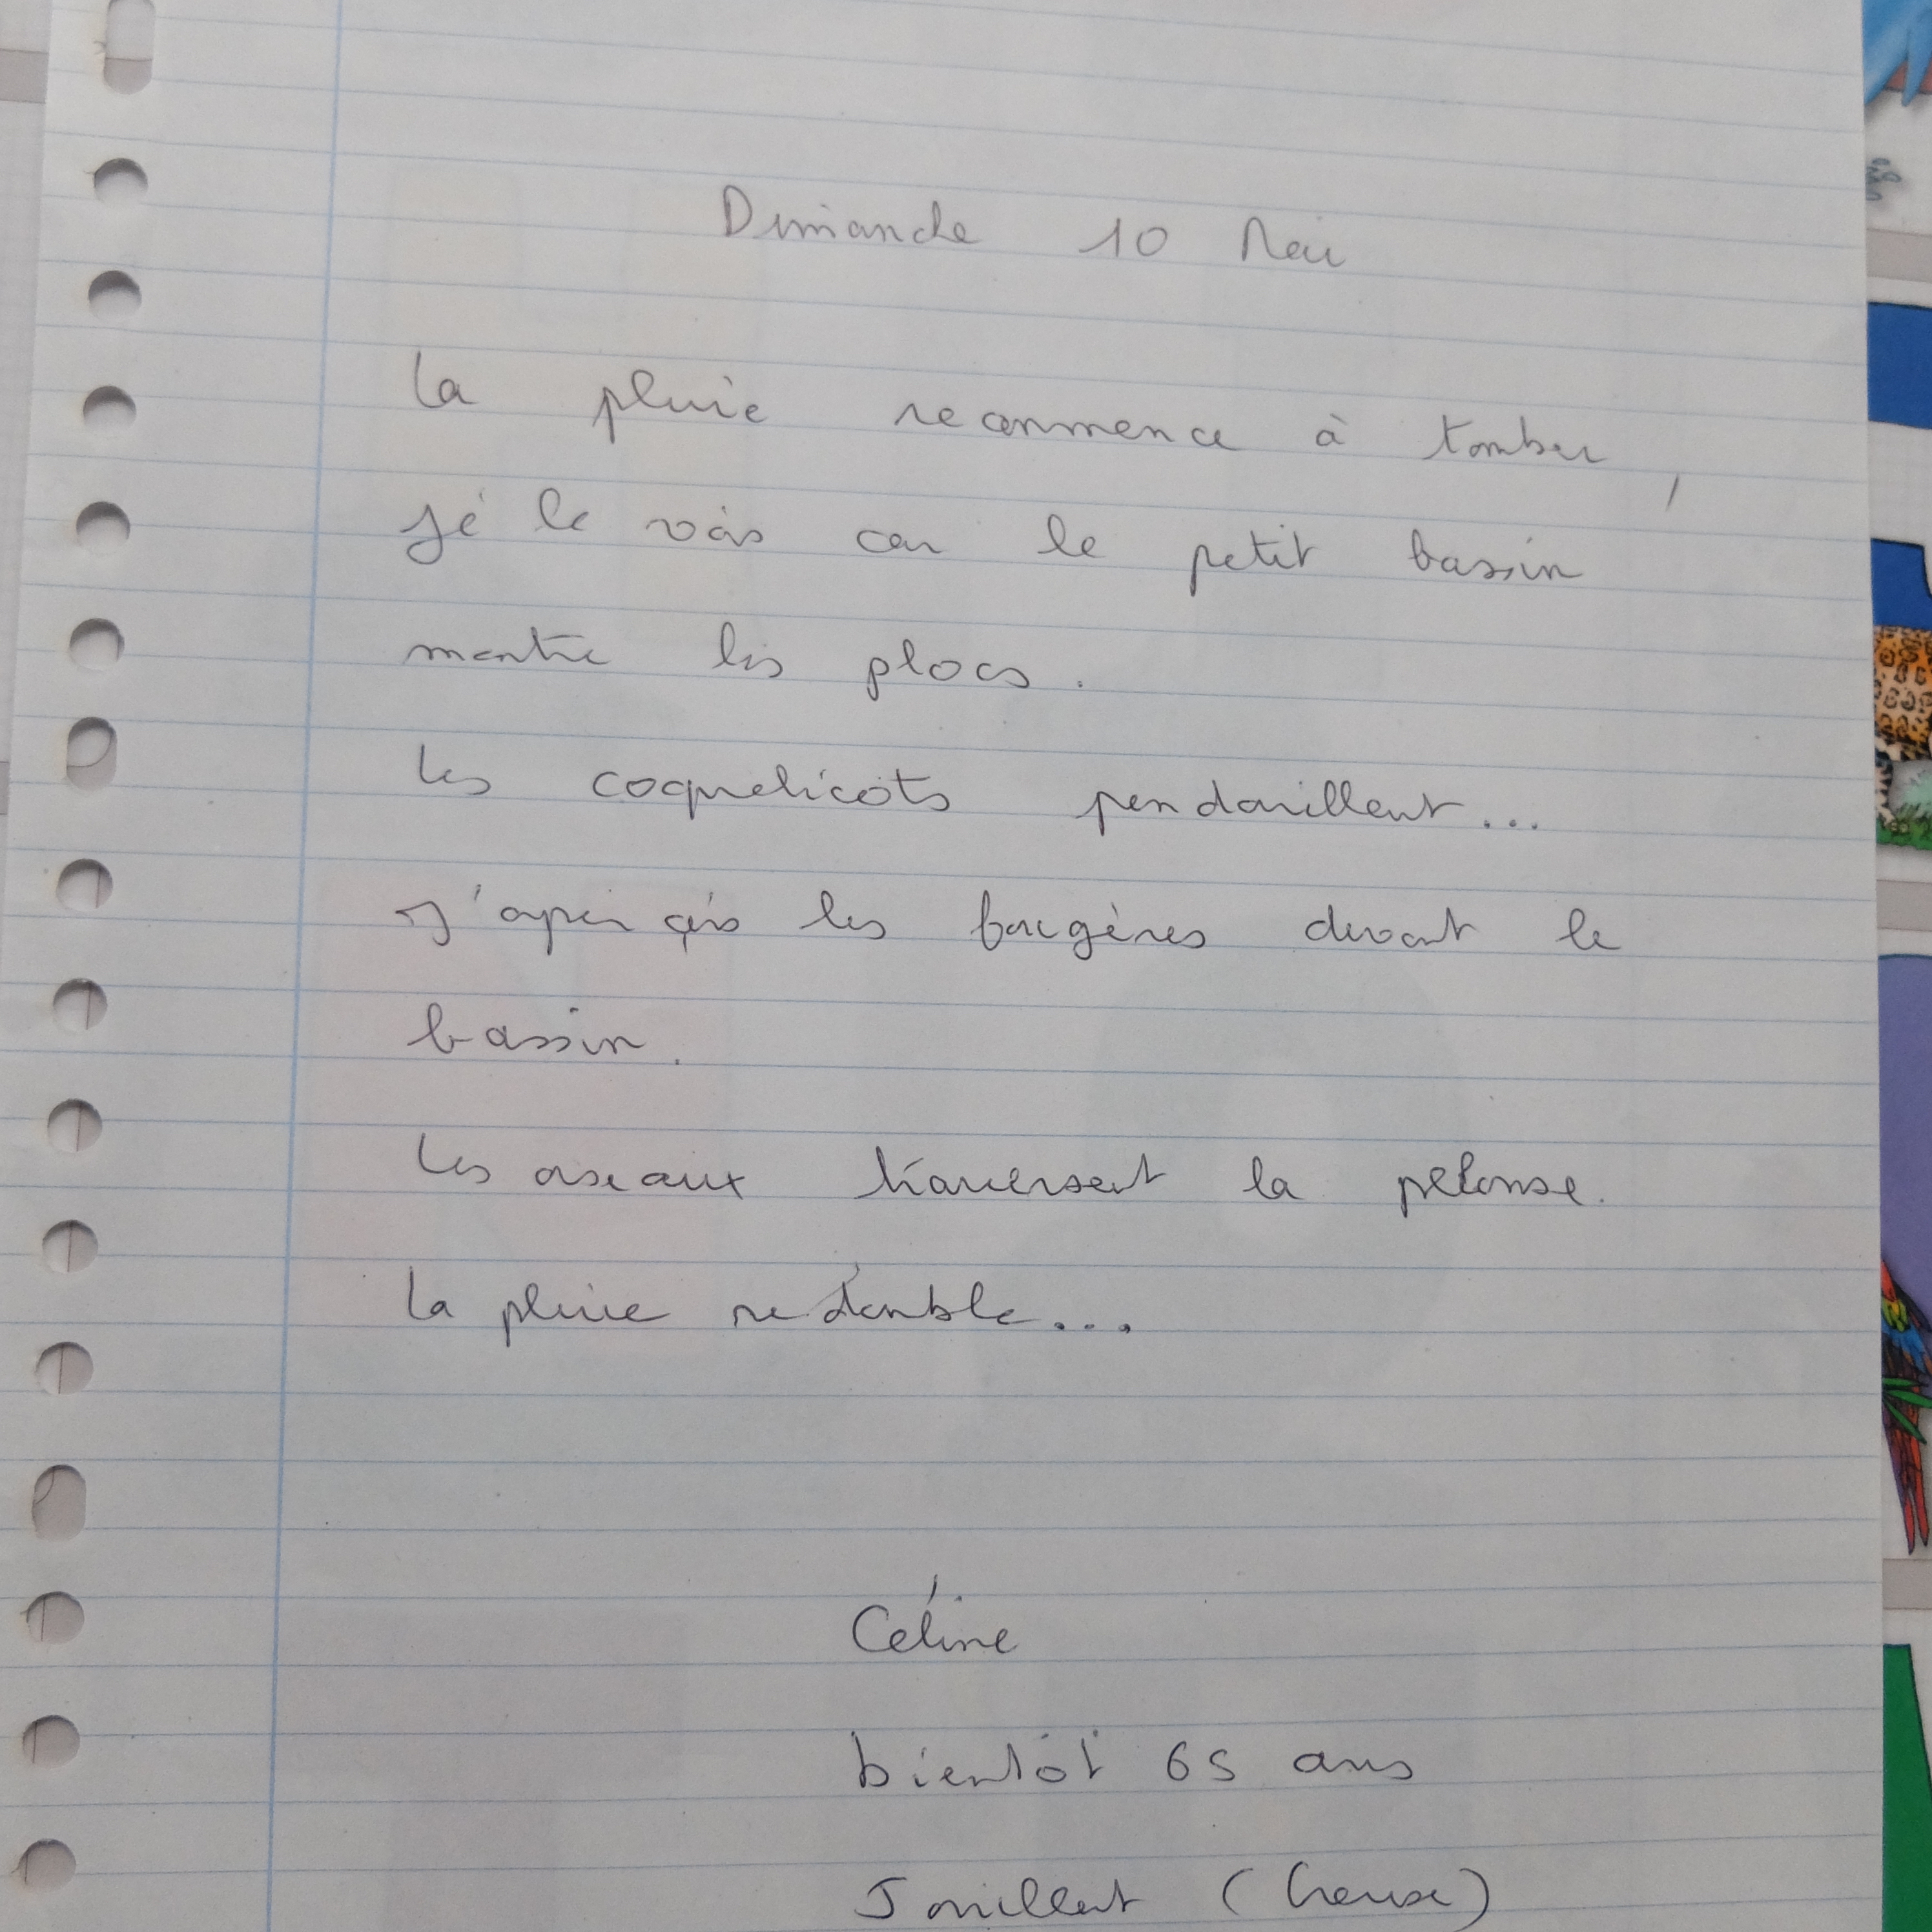 Dimanche 10 Mai
La pluie recommence à tomber,
Je le vois car le petit bassin
montre les plocs.
Les coquelicots pendouillent...
J'aperçois les fougères devant le
bassin.
Les oiseaux traversent la pelouse.
La pluie redouble...
Céline
bientôt 65 ans
Jouillat (Creuse)